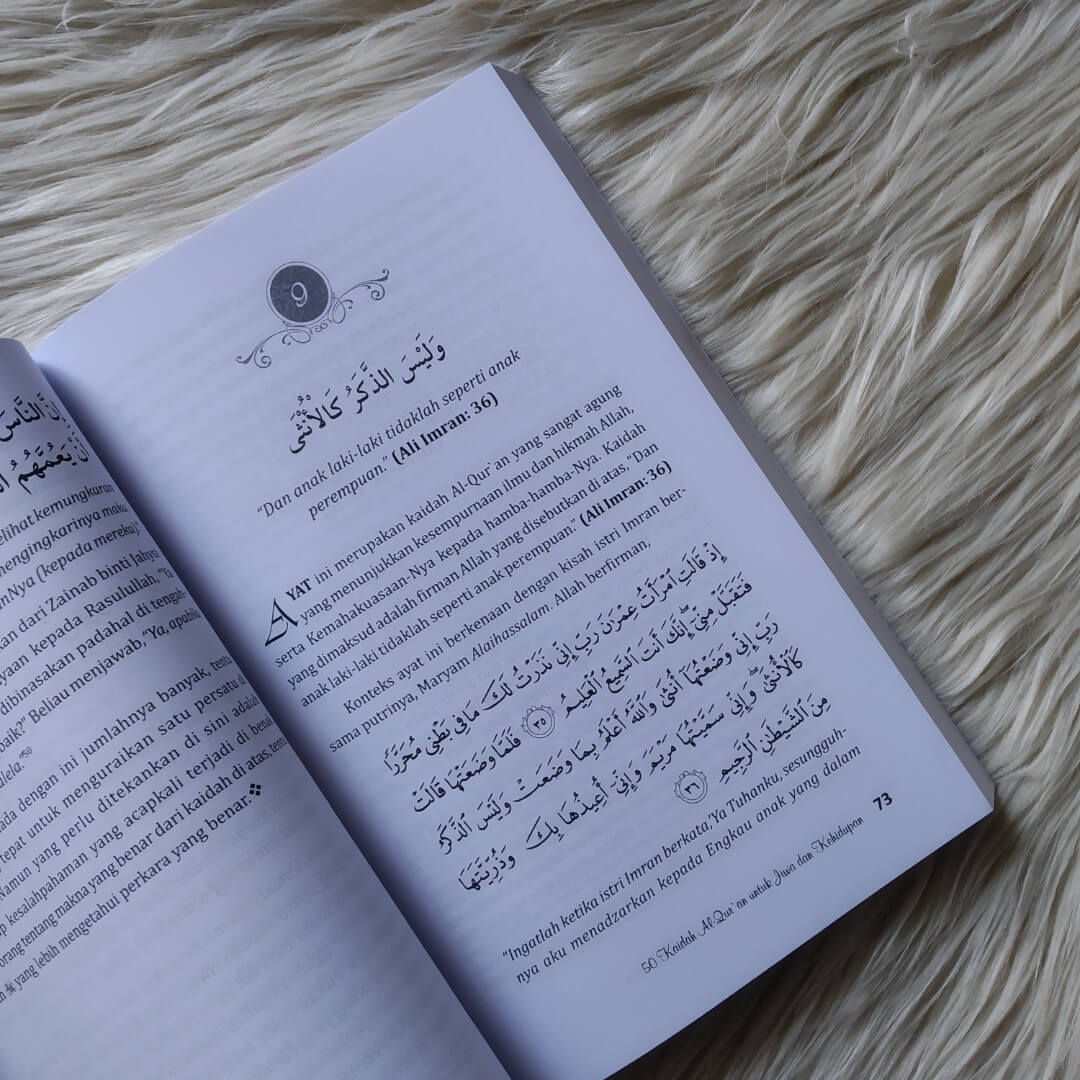 إِنَّ النَّاسَ
أَنْ يَعُمَّهُمُ
elihat kemungkaran
mengingkarinya maka
nNya (kepada mereka)"
an dari Zainab binti Jahsy
yaan kepada Rasulullah, "Ya
dibinasakan padahal di tengah-
baik?" Beliau menjawab, "Ya, apabila
lela."50
ada dengan ini jumlahnya banyak, tentu
tepat untuk menguraikan satu persatu d
Namun yang perlu ditekankan di sini adalah
p kesalahpahaman yang acapkali terjadi di benak
orang tentang makna yang benar dari kaidah di atas, tent
h ﷻ yang lebih mengetahui perkara yang benar.❖
9
وَلَيْسَ الذَّكَرُ كَالْأُنْثَى
"Dan anak laki-laki tidaklah seperti anak
perempuan." (Ali Imran: 36)
AYAT ini merupakan kaidah Al-Qur`an yang sangat agung
yang menunjukkan kesempurnaan ilmu dan hikmah Allah,
serta Kemahakuasaan-Nya kepada hamba-hamba-Nya. Kaidah
yang dimaksud adalah firman Allah yang disebutkan di atas, "Dan
anak laki-laki tidaklah seperti anak perempuan." (Ali Imran: 36)
Konteks ayat ini berkenaan dengan kisah istri Imran ber-
sama putrinya, Maryam Alaihassalam. Allah berfirman,
إِذْ قَالَتِ ٱمْرَأَتُ عِمْرَٰنَ رَبِّ إِنِّى نَذَرْتُ لَكَ مَا فِى بَطْنِى مُحَرَّرًا
فَتَقَبَّلْ مِنِّىٓ ۖ إِنَّكَ أَنتَ ٱلسَّمِيعُ ٱلْعَلِيمُ ٣٥ فَلَمَّا وَضَعَتْهَا قَالَتْ
رَبِّ إِنِّى وَضَعْتُهَآ أُنثَىٰ وَٱللَّهُ أَعْلَمُ بِمَا وَضَعَتْ وَلَيْسَ ٱلذَّكَرُ
كَٱلْأُنثَىٰ ۖ وَإِنِّى سَمَّيْتُهَا مَرْيَمَ وَإِنِّىٓ أُعِيذُهَا بِكَ وَذُرِّيَّتَهَا
مِنَ ٱلشَّيْطَٰنِ ٱلرَّجِيمِ ٣٦
"Ingatlah ketika istri Imran berkata, 'Ya Tuhanku, sesungguh-
nya aku menadzarkan kepada Engkau anak yang dalam
50 Kaidah Al-Qur`an untuk Jiwa dan Kehidupan
73